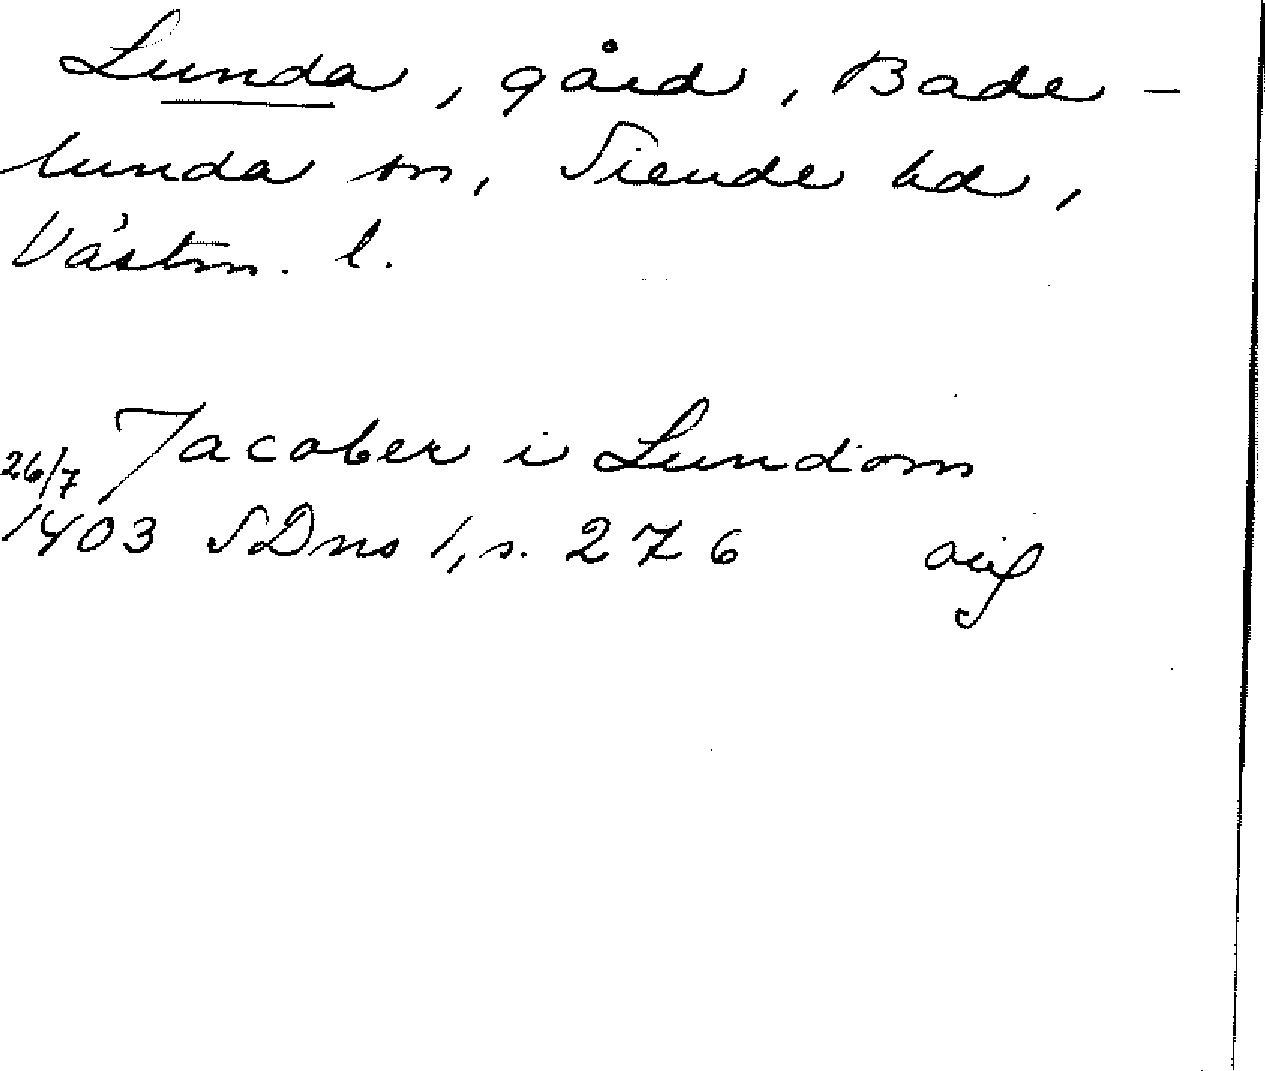 Lunda, gård, Bade-
lunda sn, Siende hd,
Västm. l.
Jacober i Lundom
26/7
1403 SDns 1, s. 276 oif